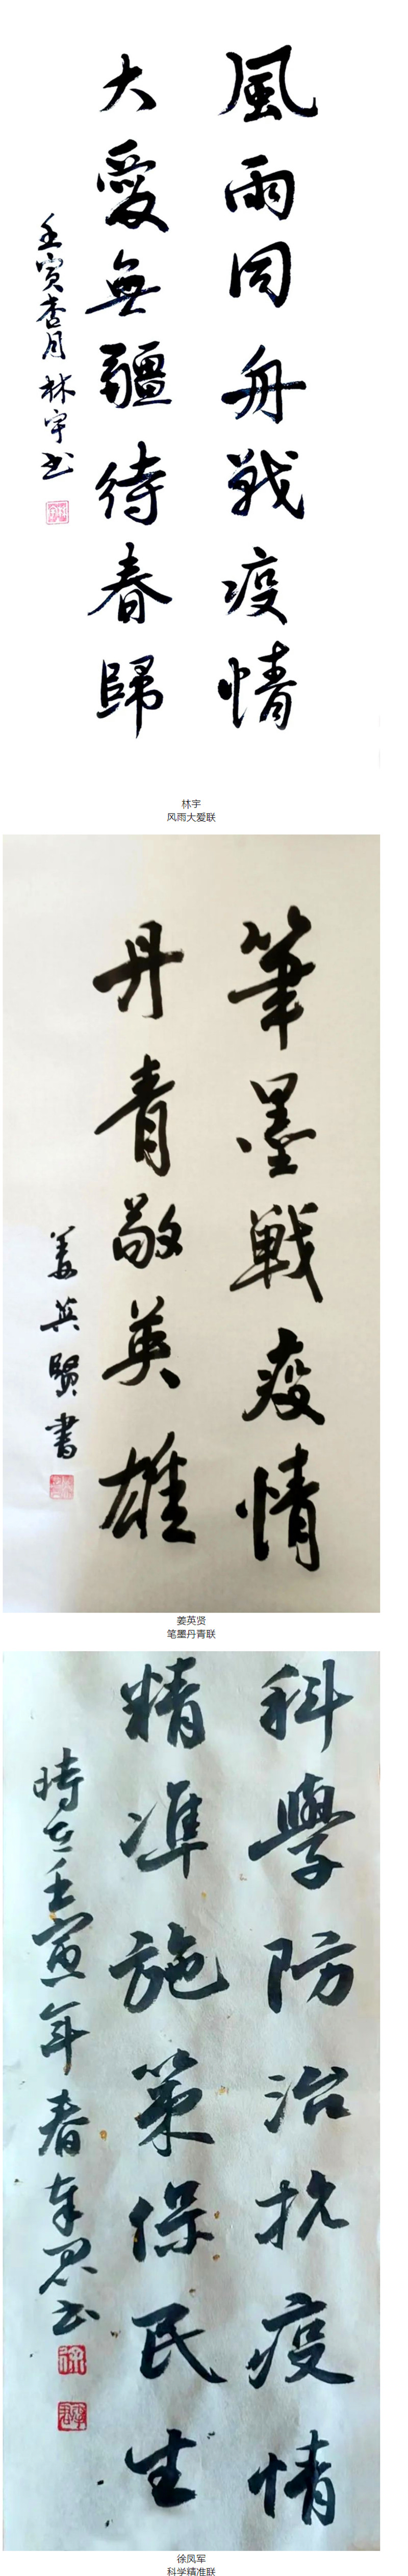 風雨同舟戰疫情
大愛無疆待春歸
壬寅杏月林宇书
林宇
风雨大爱联
筆墨戰疫情
丹青敬英雄
姜英賢書
姜英贤
笔墨丹青联
科學防治抗疫情
精準施策保民生
時在壬寅年春奉君书
徐凤军
科学精准联